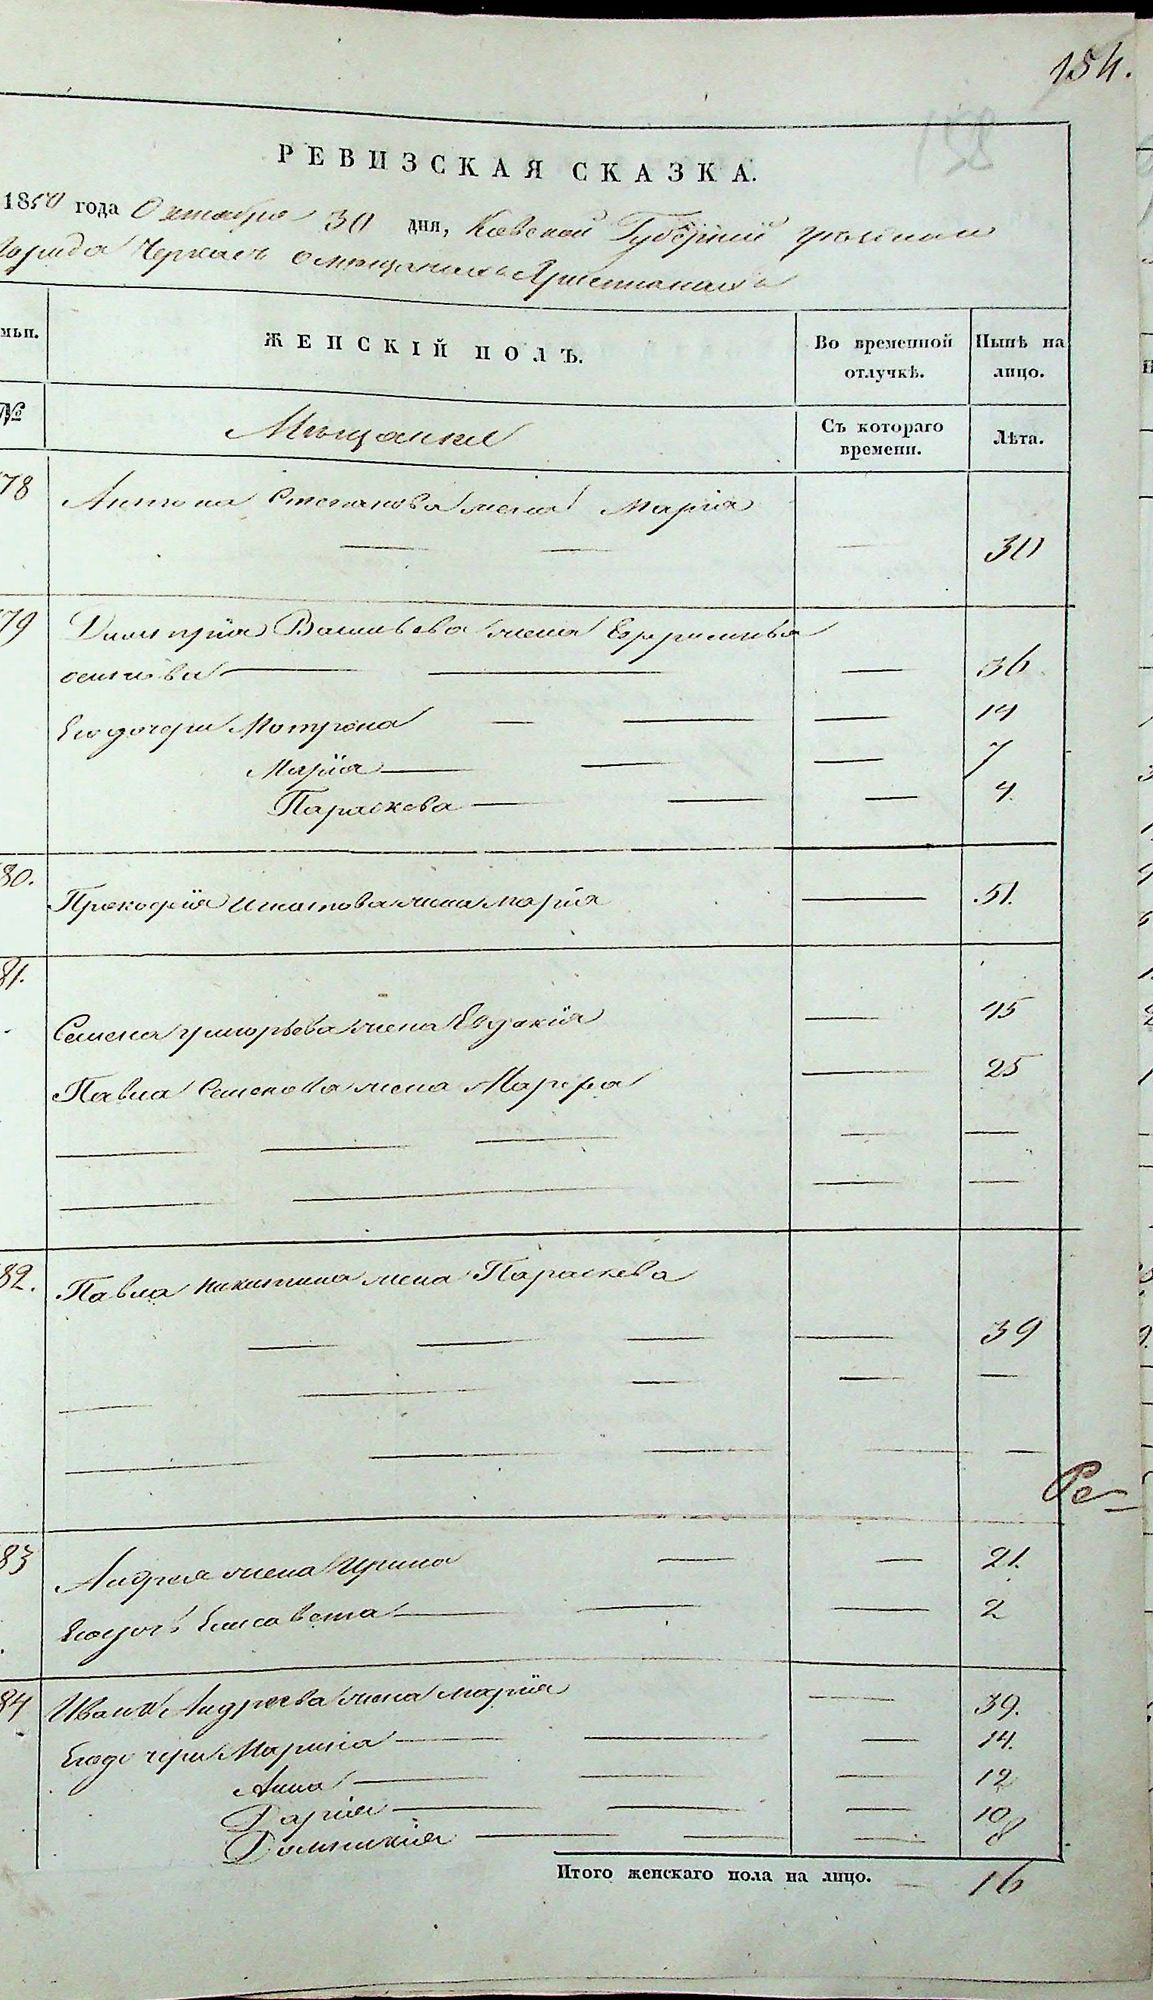 154.
РЕВИЗСКАЯ СКАЗКА.
1850 года Октября 30 дня, Киевской Губернии
Города Черкасъ о мещанахъ Христианахъ
ЖЕНСКІЙ ПОЛЪ.
Во временной отлучкѣ.
Нынѣ на лицо.
№
Мещанки
Съ котораго времени.
Лѣта.
78 Антона Степанова жена Марія
30
79 Дмитрія Васильева жена Ефросинья
Осипова 36
Его дочери Мотрона 14
Марія 7
Параскева 4.
80. Прокофія Игнатова жена Марія 51.
81.
Семена Григорьева жена Евдокія 45
Павла Семенова жена Марфа 25
82. Павла Никитина жена Параскева
39
Ре-
83 Андрея жена Ирина 21.
Его дочь Елисавета 2
84 Ивана Андреева жена Марія 39.
Его дочери Марина 14.
Анна 12
Дарія 10
Домникія 8
Итого женскаго пола на лицо. 16